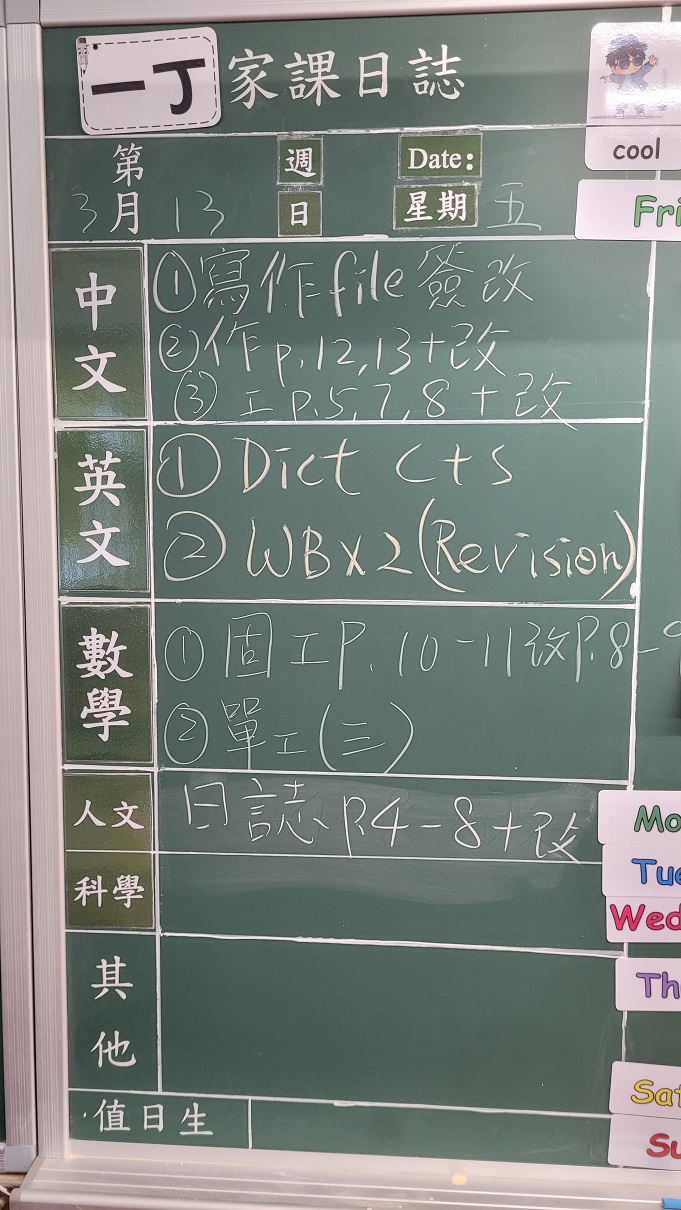 一丁 家課日誌
cool
第 週 Date:
3月13日 星期五
Fri
中文
①寫作file簽改
②作p.12,13+改
③工P.5,7,8+改
英文
①Dict C+S
②WBX2(Revision)
數學
①固工P.10-11改P.8-9
②單工(三)
人文
日誌P.4-8+改
科學
其他
值日生
Mo
Tue
Wed
Th
Sat
Su